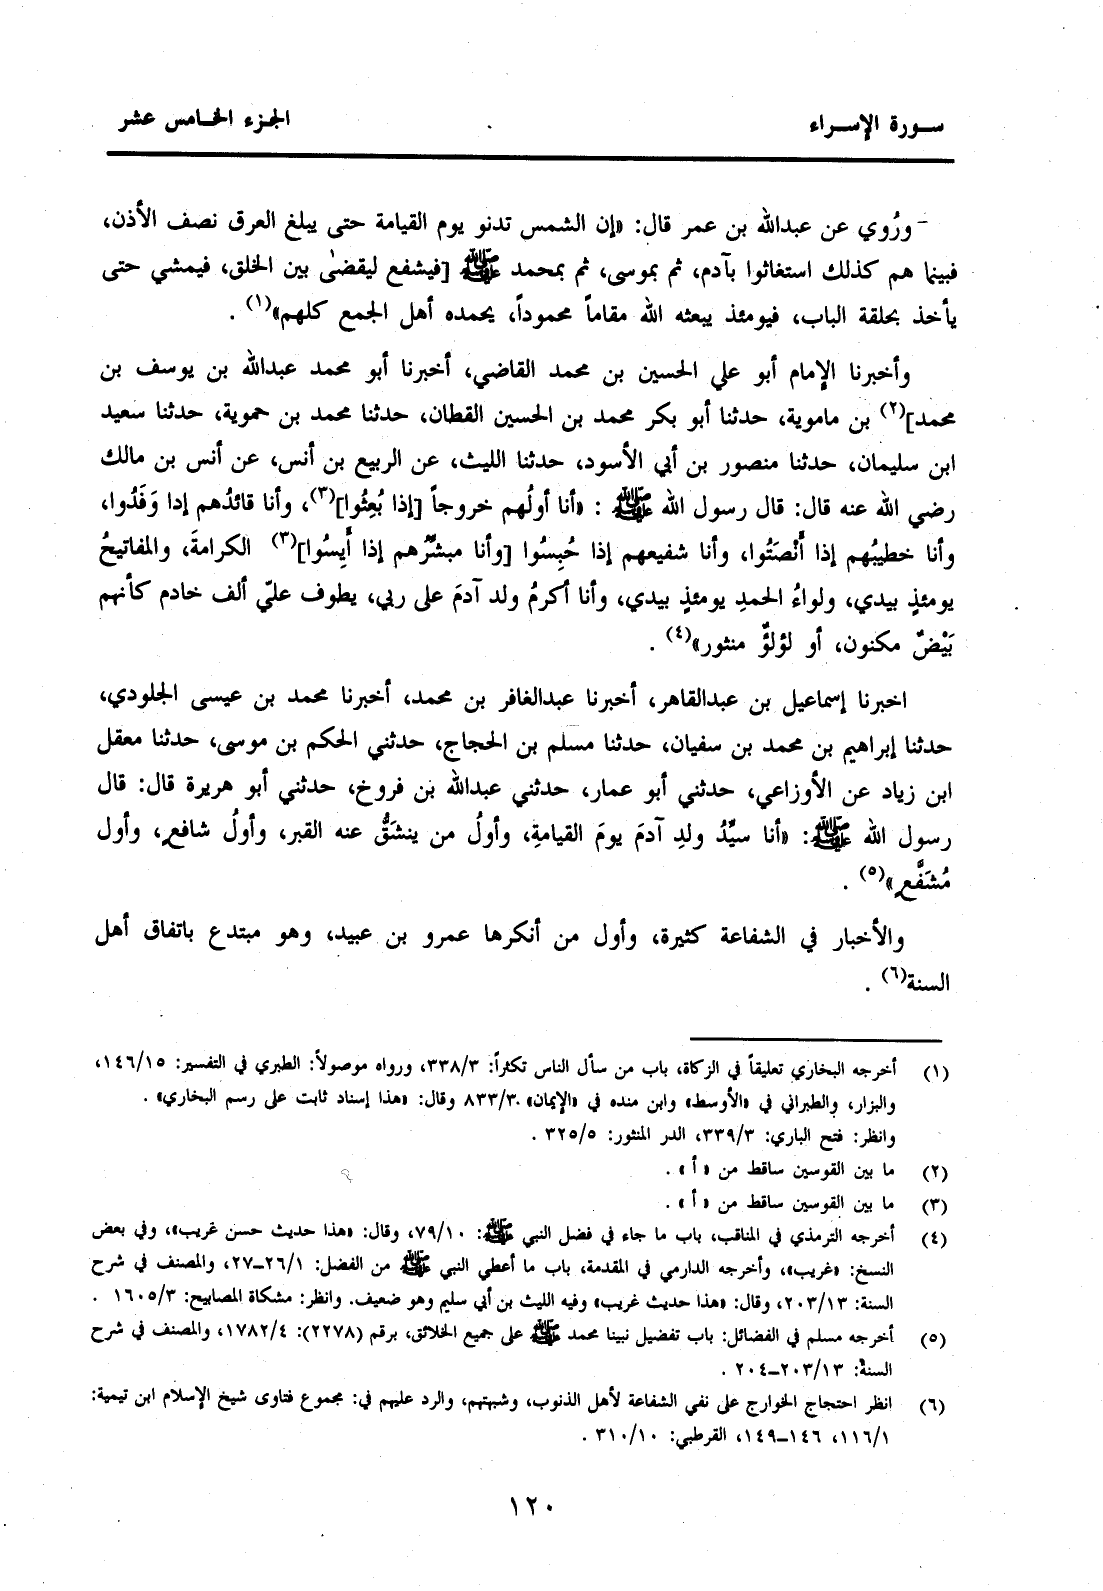 سورة الإسراء
الجزء الخامس عشر
- ورُوي عن عبدالله بن عمر قال: «إن الشمس تدنو يوم القيامة حتى يبلغ العرق نصف الأذن،
فبينما هم كذلك استغاثوا بآدم، ثم بموسى، ثم بمحمد ﷺ [فيشفع ليقضىٰ بين الخلق، فيمشي حتى
يأخذ بحلقة الباب، فيومئذ يبعثه الله مقاماً محموداً، يحمده أهل الجمع كلهم»(١) .
وأخبرنا الإمام أبو علي الحسين بن محمد القاضي، أخبرنا أبو محمد عبدالله بن يوسف بن
محمد](٢) بن ماموية، حدثنا أبو بكر محمد بن الحسين القطان، حدثنا محمد بن حموية، حدثنا سعيد
ابن سليمان، حدثنا منصور بن أبي الأسود، حدثنا الليث، عن الربيع بن أنس، عن أنس بن مالك
رضي الله عنه قال: قال رسول الله ﷺ : «أنا أولُهم خروجاً [إذا بُعِثُوا](٣)، وأنا قائدُهم إذا وَفَدُوا،
وأنا خطيبُهم إذا أَنْصَتُوا، وأنا شفيعهم إذا حُبِسُوا [وأنا مبشّرُهم إذا أَيِسُوا](٣) الكرامةَ، والمفاتيحُ
يومئذٍ بيدي، ولواءُ الحمدِ يومئذٍ بيدي، وأنا أكرمُ ولد آدمَ على ربي، يطوف عليّ ألف خادم كأنهم
بَيْضٌ مكنون، أو لؤلؤٌ منثور»(٤) .
اخبرنا إسماعيل بن عبدالقاهر، أخبرنا عبدالغافر بن محمد، أخبرنا محمد بن عيسى الجلودي،
حدثنا إبراهيم بن محمد بن سفيان، حدثنا مسلم بن الحجاج، حدثني الحكم بن موسى، حدثنا معقل
ابن زياد عن الأوزاعي، حدثني أبو عمار، حدثني عبدالله بن فروخ، حدثني أبو هريرة قال: قال
رسول الله ﷺ: «أنا سيِّدُ ولدِ آدمَ يومَ القيامةِ، وأولُ من ينشقُّ عنه القبر، وأولُ شافعٍ، وأول
مُشَفَّعٍ»(٥) .
والأخبار في الشفاعة كثيرة، وأول من أنكرها عمرو بن عبيد، وهو مبتدع باتفاق أهل
السنة(٦) .
(١) أخرجه البخاري تعليقاً في الزكاة، باب من سأل الناس تكثراً: ٣٣٨/٣، ورواه موصولاً: الطبري في التفسير: ١٤٦/١٥،
والبزار، والطبراني في «الأوسط» وابن منده في «الإيمان» ٨٣٣/٣ وقال: «هذا إسناد ثابت على رسم البخاري» .
وانظر: فتح الباري: ٣٣٩/٣، الدر المنثور: ٣٢٥/٥ .
(٢) ما بين القوسين ساقط من «أ» .
(٣) ما بين القوسين ساقط من «أ» .
(٤) أخرجه الترمذي في المناقب، باب ما جاء في فضل النبي ﷺ: ٧٩/١٠، وقال: «هذا حديث حسن غريب»، وفي بعض
النسخ: «غريب»، وأخرجه الدارمي في المقدمة، باب ما أعطي النبي ﷺ من الفضل: ٢٦/١-٢٧، والمصنف في شرح
السنة: ٢٠٣/١٣، وقال: «هذا حديث غريب» وفيه الليث بن أبي سليم وهو ضعيف. وانظر: مشكاة المصابيح: ١٦٠٥/٣ .
(٥) أخرجه مسلم في الفضائل: باب تفضيل نبينا محمد ﷺ على جميع الخلائق، برقم (٢٢٧٨): ١٧٨٢/٤، والمصنف في شرح
السنة: ٢٠٣/١٣-٢٠٤ .
(٦) انظر احتجاج الخوارج على نفي الشفاعة لأهل الذنوب، وشبهتهم، والرد عليهم في: مجموع فتاوى شيخ الإسلام ابن تيمية:
١١٦/١، ١٤٦-١٤٩، القرطبي: ٣١٠/١٠ .
١٢٠